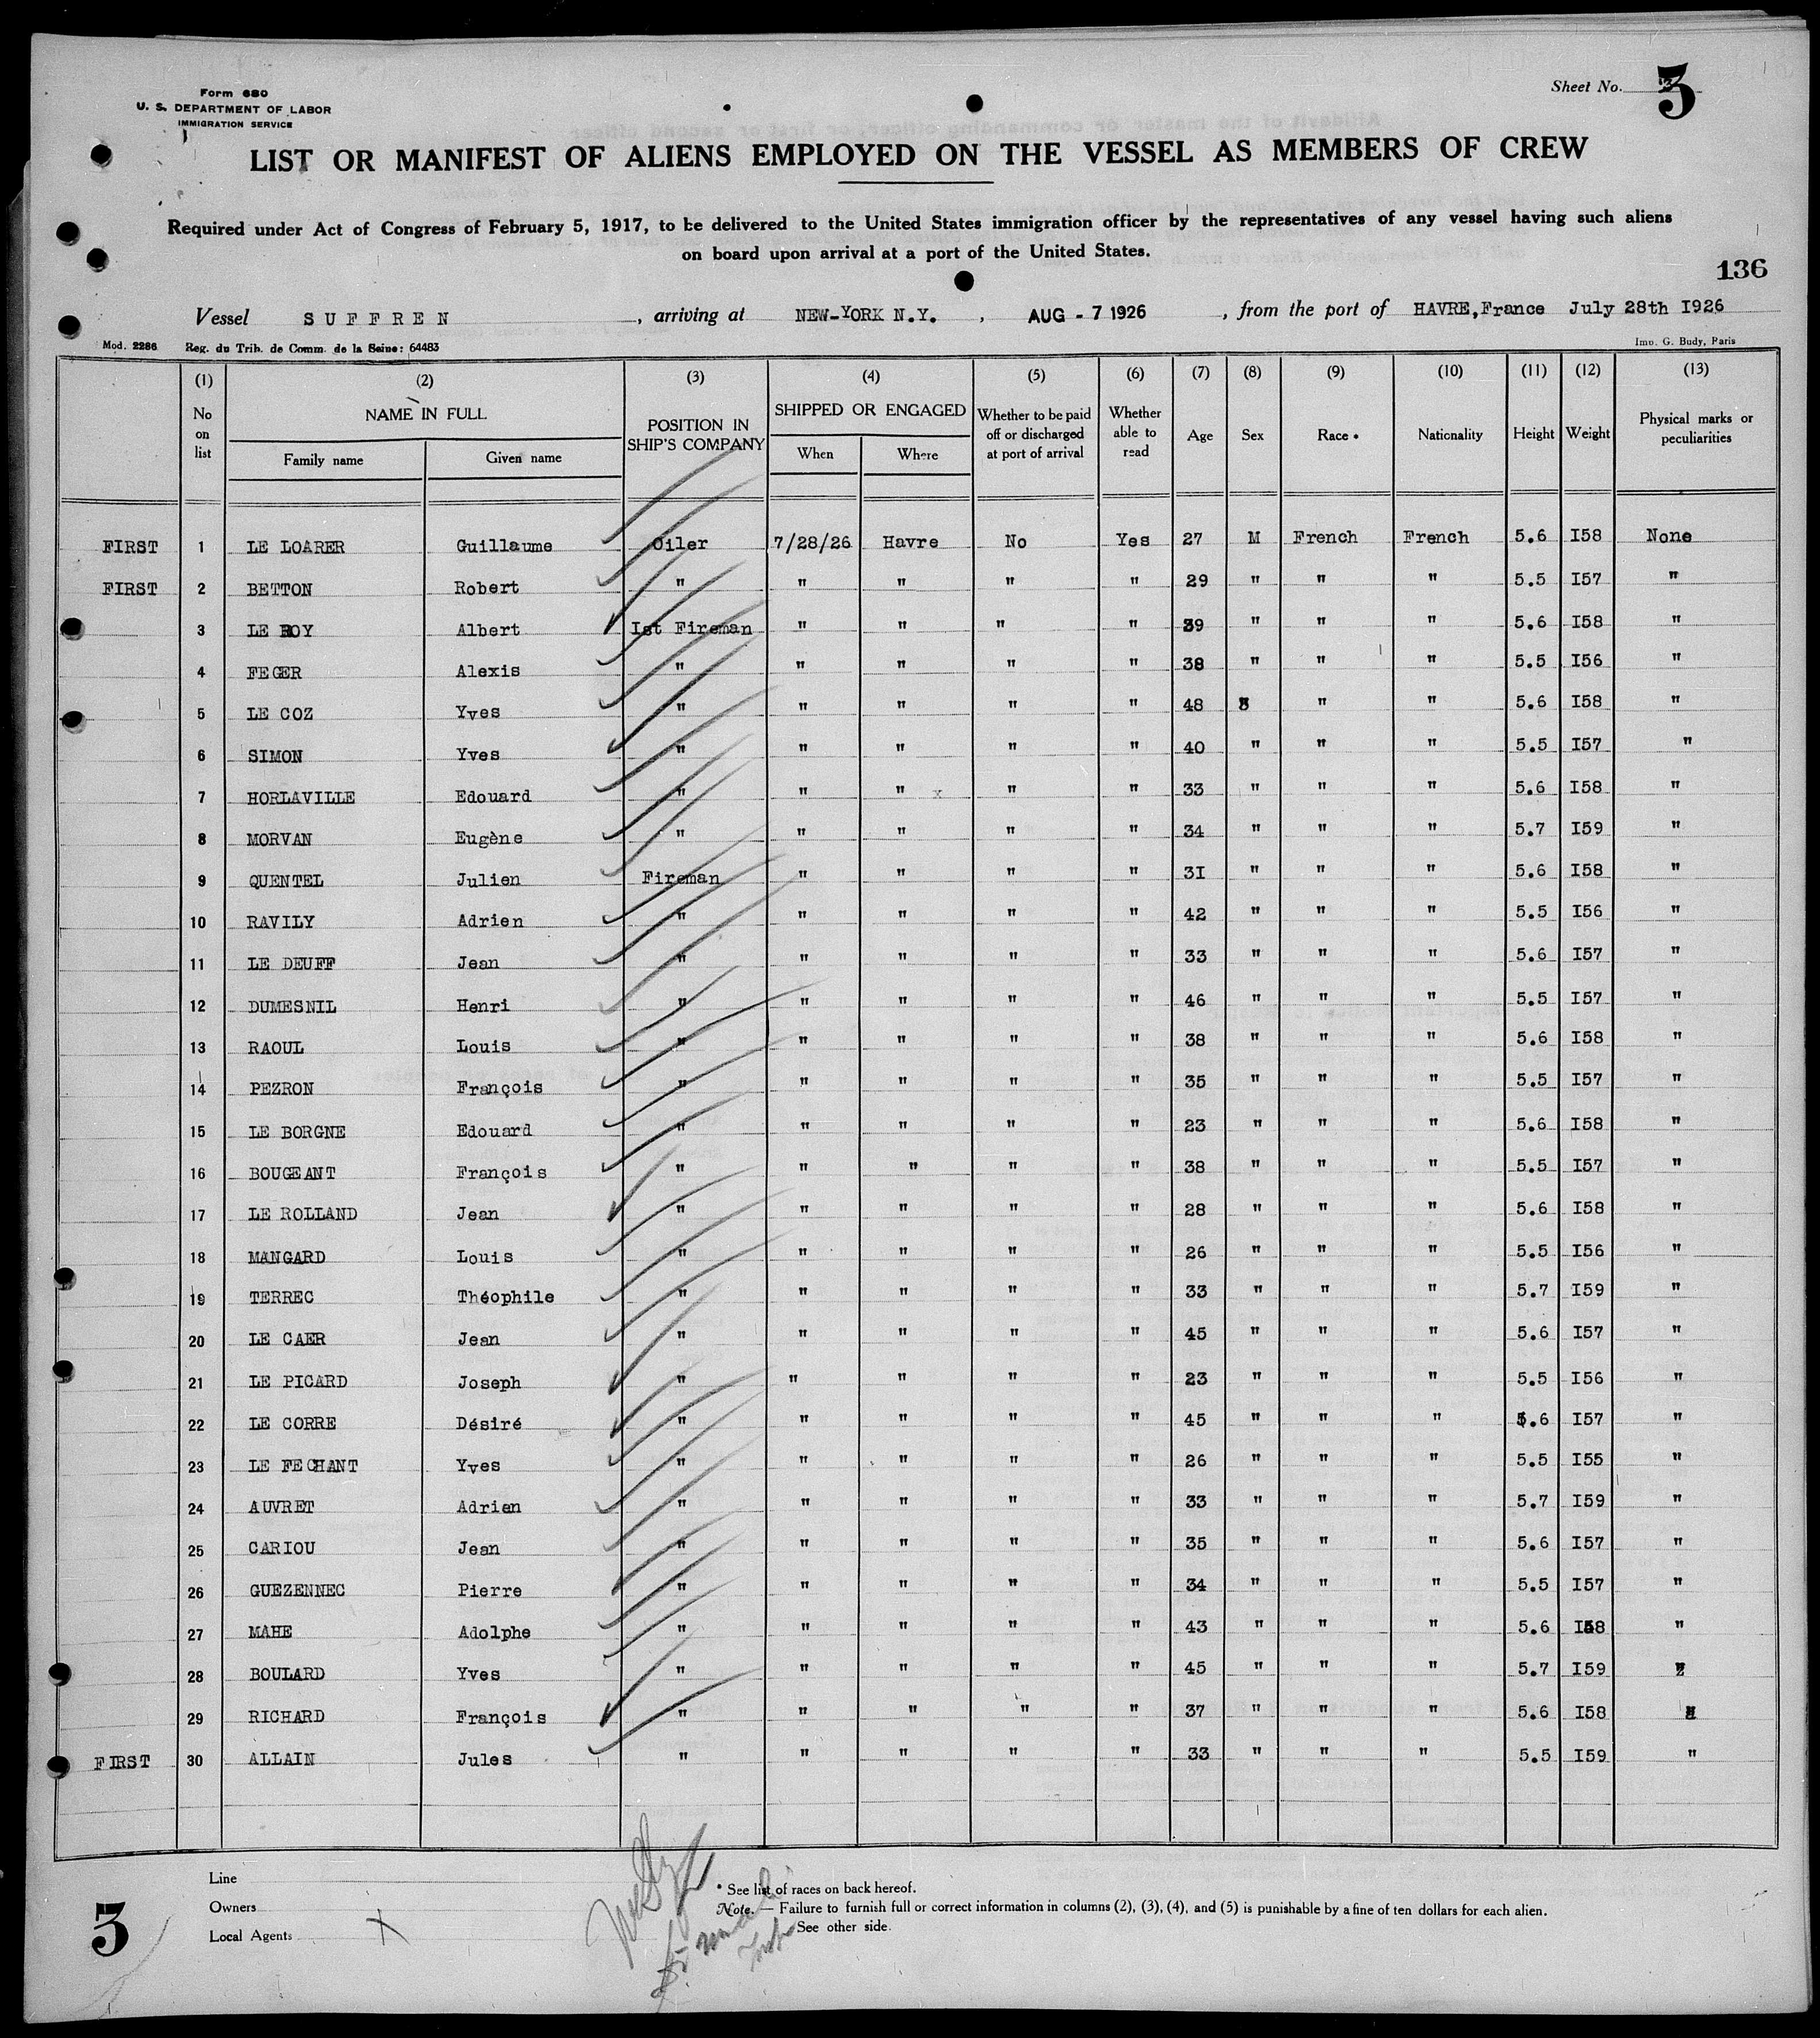 Form 680
U. S. DEPARTMENT OF LABOR
IMMIGRATION SERVICE
Sheet No. 3
LIST OR MANIFEST OF ALIENS EMPLOYED ON THE VESSEL AS MEMBERS OF CREW
Required under Act of Congress of February 5, 1917, to be delivered to the United States immigration officer by the representatives of any vessel having such aliens
on board upon arrival at a port of the United States.
136
Vessel SUFFREN, arriving at NEW-YORK N.Y., AUG - 7 1926, from the port of HAVRE,France July 28th I926
Mod. 2286 Reg. du Trib. de Comm. de la Seine: 64483 Imp. G. Budy, Paris
(1) (2) (3) (4) (5) (6) (7) (8) (9) (10) (11) (12) (13)
No on list NAME IN FULL Family name Given name POSITION IN SHIP'S COMPANY SHIPPED OR ENGAGED When Where Whether to be paid off or discharged at port of arrival Whether able to read Age Sex Race • Nationality Height Weight Physical marks or peculiarities
FIRST 1 LE LOARER Guillaume Oiler 7/28/26 Havre No Yes 27 M French French 5.6 I58 None
FIRST 2 BETTON Robert " " " " " 29 " " " 5.5 I57 "
3 LE ROY Albert Ist Fireman " " " " 39 " " " 5.6 I58 "
4 FEGER Alexis " " " " " 38 " " " 5.5 I56 "
5 LE COZ Yves " " " " " 48 " " " 5.6 I58 "
6 SIMON Yves " " " " " 40 " " " 5.5 I57 "
7 HORLAVILLE Edouard " " " x " " 33 " " " 5.6 I58 "
8 MORVAN Eugène " " " " " 34 " " " 5.7 I59 "
9 QUENTEL Julien Fireman " " " " 3I " " " 5.6 I58 "
10 RAVILY Adrien " " " " " 42 " " " 5.5 I56 "
11 LE DEUFF Jean " " " " " 33 " " " 5.6 I57 "
12 DUMESNIL Henri " " " " " 46 " " " 5.5 I57 "
13 RAOUL Louis " " " " " 38 " " " 5.6 I58 "
14 PEZRON François " " " " " 35 " " " 5.5 I57 "
15 LE BORGNE Edouard " " " " " 23 " " " 5.6 I58 "
16 BOUGEANT François " " " " " 38 " " " 5.5 I57 "
17 LE ROLLAND Jean " " " " " 28 " " " 5.6 I58 "
18 MANGARD Louis " " " " " 26 " " " 5.5 I56 "
19 TERREC Théophile " " " " " 33 " " " 5.7 I59 "
20 LE CAER Jean " " " " " 45 " " " 5.6 I57 "
21 LE PICARD Joseph " " " " " 23 " " " 5.5 I56 "
22 LE CORRE Désiré " " " " " 45 " " " 5.6 I57 "
23 LE FECHANT Yves " " " " " 26 " " " 5.5 I55 "
24 AUVRET Adrien " " " " " 33 " " " 5.7 I59 "
25 CARIOU Jean " " " " " 35 " " " 5.6 I57 "
26 GUEZENNEC Pierre " " " " " 34 " " " 5.5 I57 "
27 MAHE Adolphe " " " " " 43 " " " 5.6 I58 "
28 BOULARD Yves " " " " " 45 " " " 5.7 I59 "
29 RICHARD François " " " " " 37 " " " 5.6 I58 "
FIRST 30 ALLAIN Jules " " " " " 33 " " " 5.5 I59 "
Line
Owners
Local Agents
3
* See list of races on back hereof.
Note. — Failure to furnish full or correct information in columns (2), (3), (4), and (5) is punishable by a fine of ten dollars for each alien.
See other side.